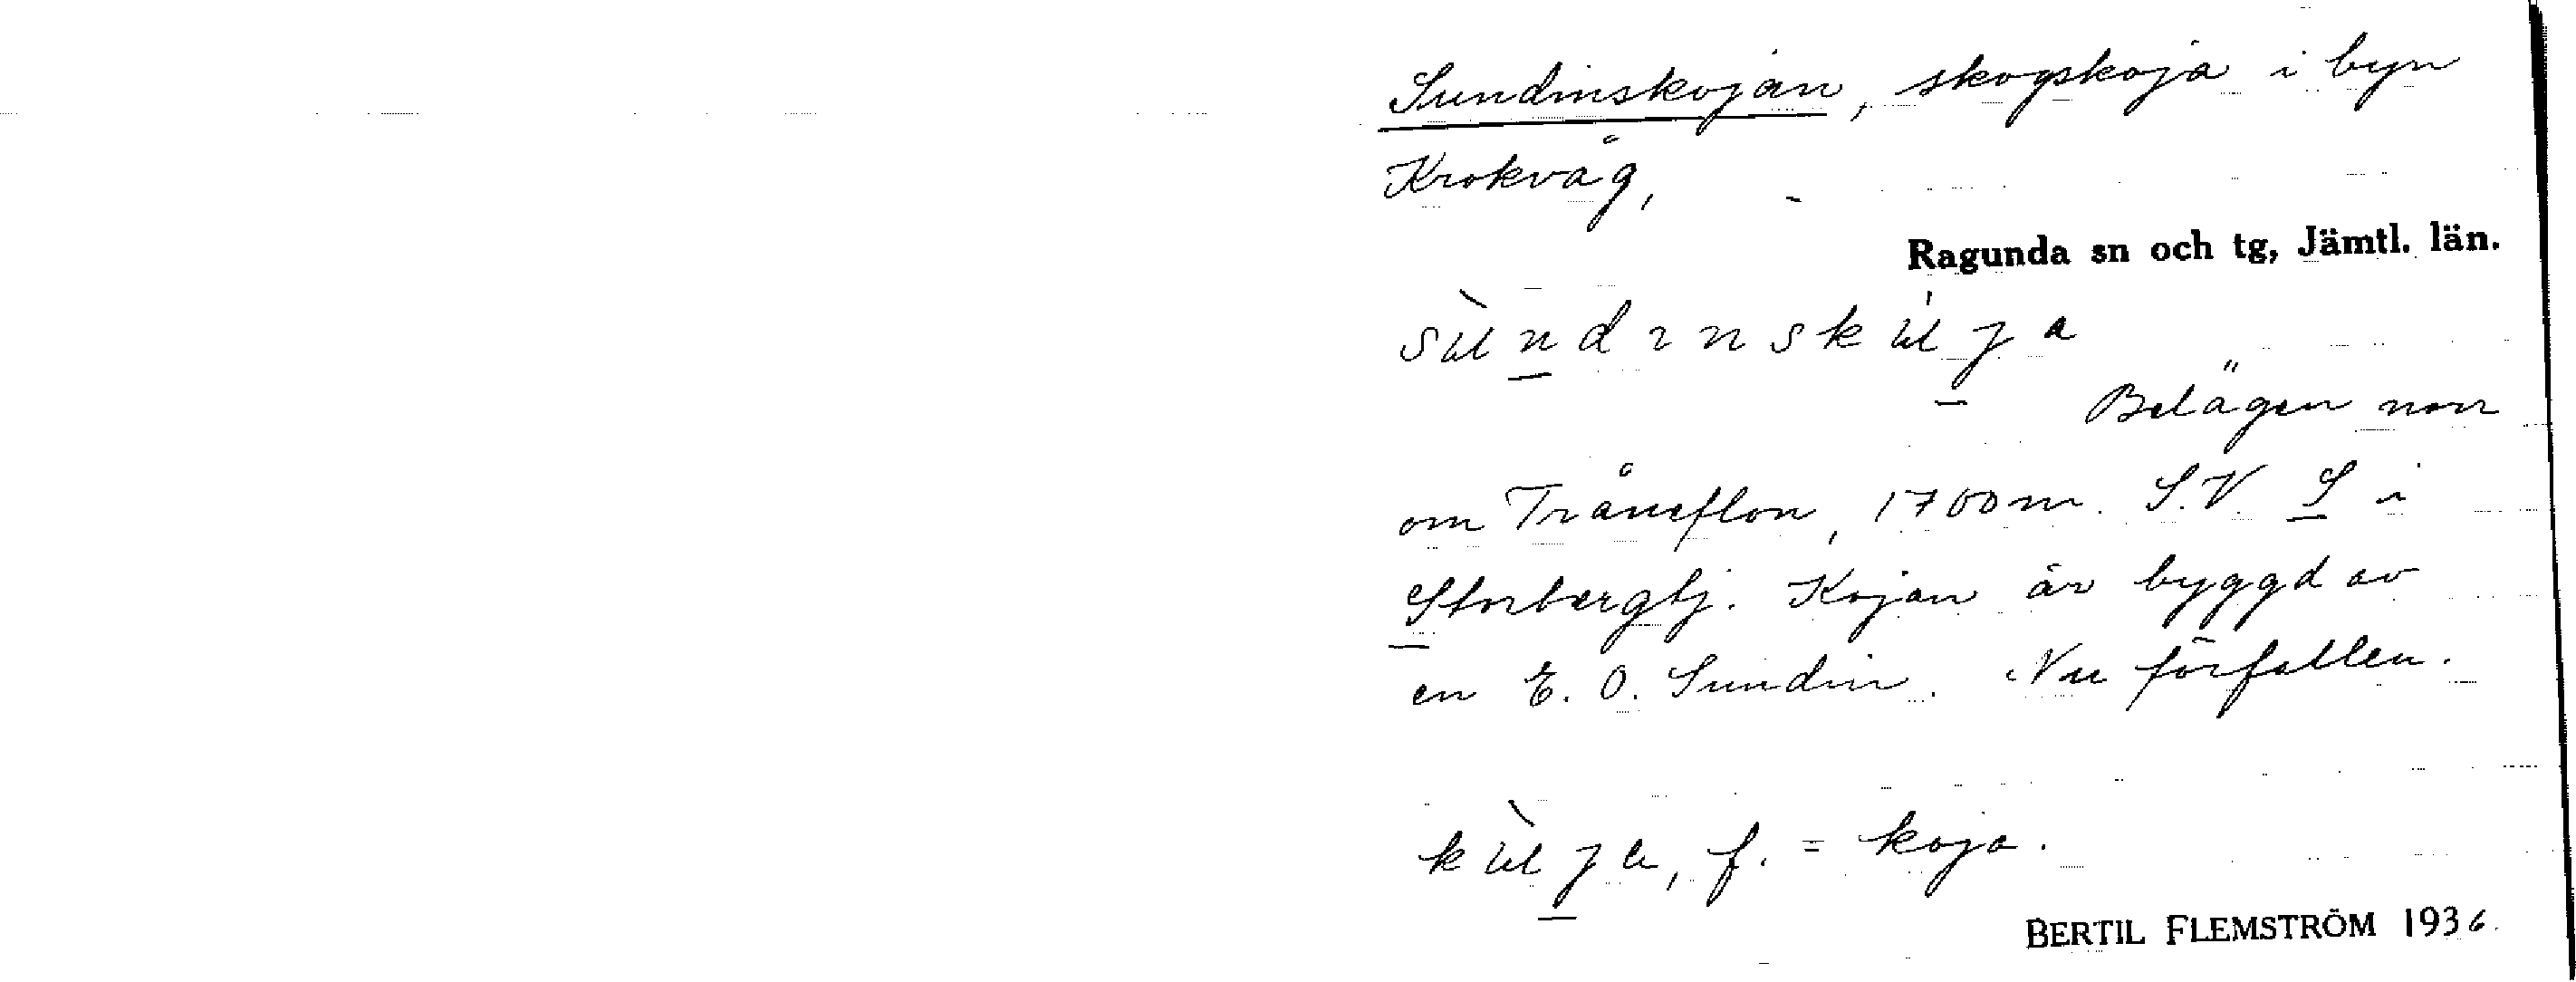 Sundinskojan, skogskoja i byn
Krokvåg,
Ragunda sn och tg, Jämtl. län.
sùndınskúja
Belägen norr
om Tråneflon, 1700 m. S.V. S i
Storbergtj. Kojan är byggd av
en E. O. Sundin. Nu förfallen.
kùja, f. = koja.
BERTIL FLEMSTRÖM 1936.